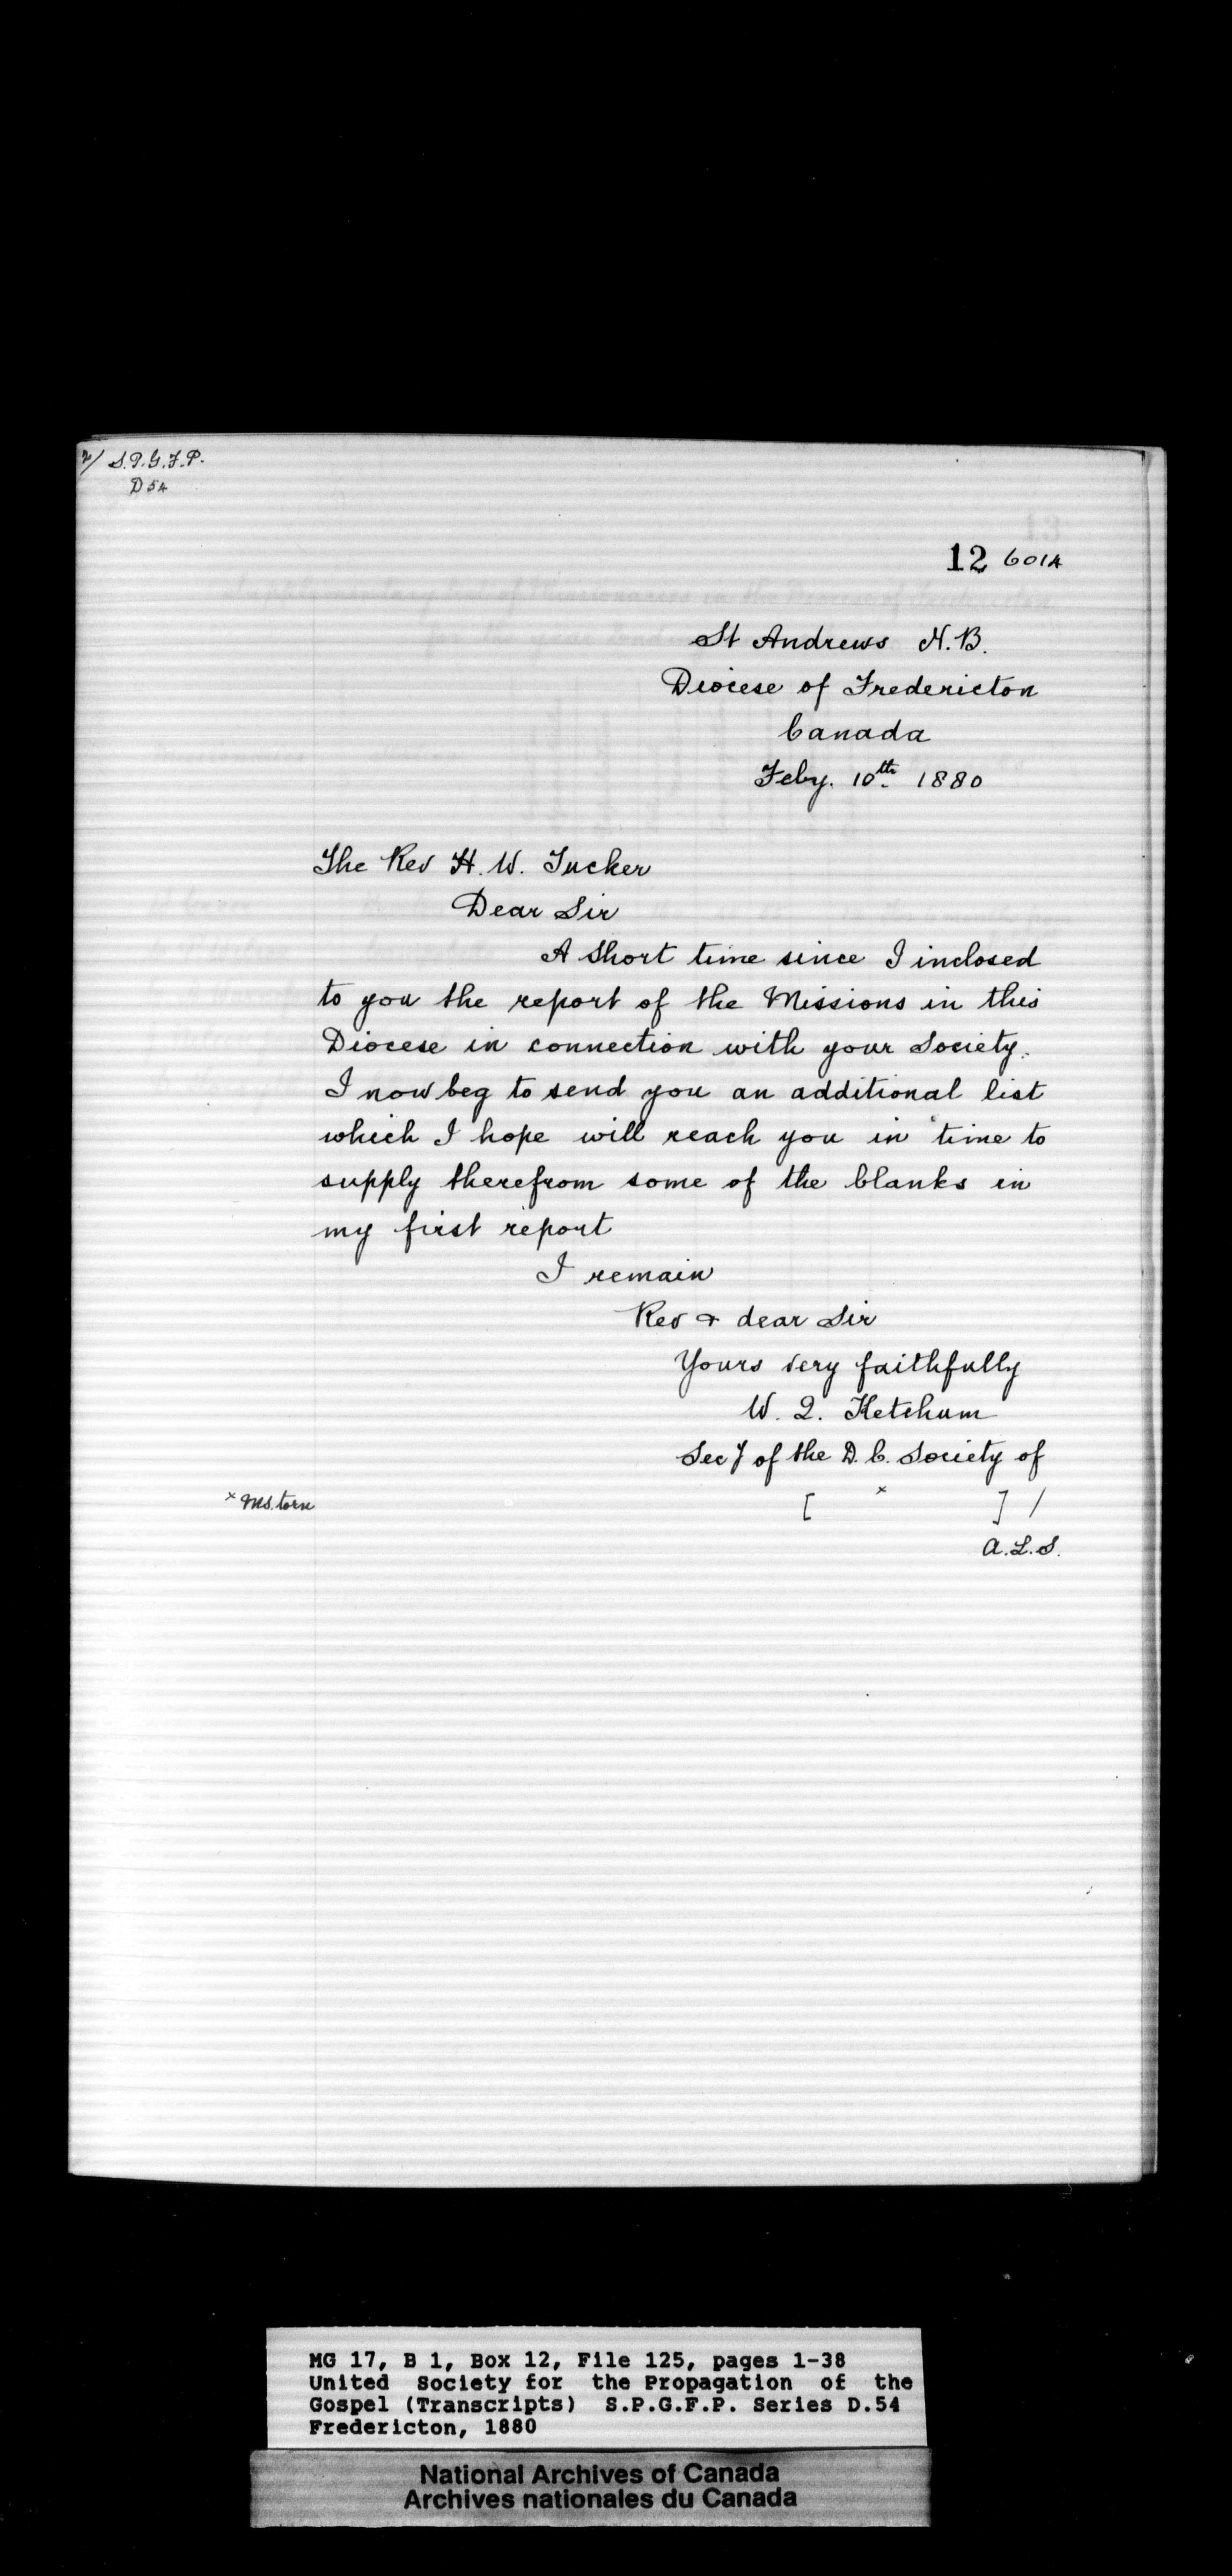 2/ S.P.G.F.P.
D 54
12 601A
St Andrews N.B.
Diocese of Fredericton
Canada
Feby. 10th. 1880
The Rev H. W. Tucker
Dear Sir
A short time since I inclosed
to you the report of the Missions in this
Diocese in connection with your Society.
I now beg to send you an additional list
which I hope will reach you in time to
supply therefrom some of the blanks in
my first report
I remain
Rev & dear Sir
Yours very faithfully
W. Q. Ketchum
Secy of the D. C. Society of
x Ms. torn [ x ] /
A.L.S.
MG 17, B 1, Box 12, File 125, pages 1-38
United Society for the Propagation of the
Gospel (Transcripts) S.P.G.F.P. Series D.54
Fredericton, 1880
National Archives of Canada
Archives nationales du Canada